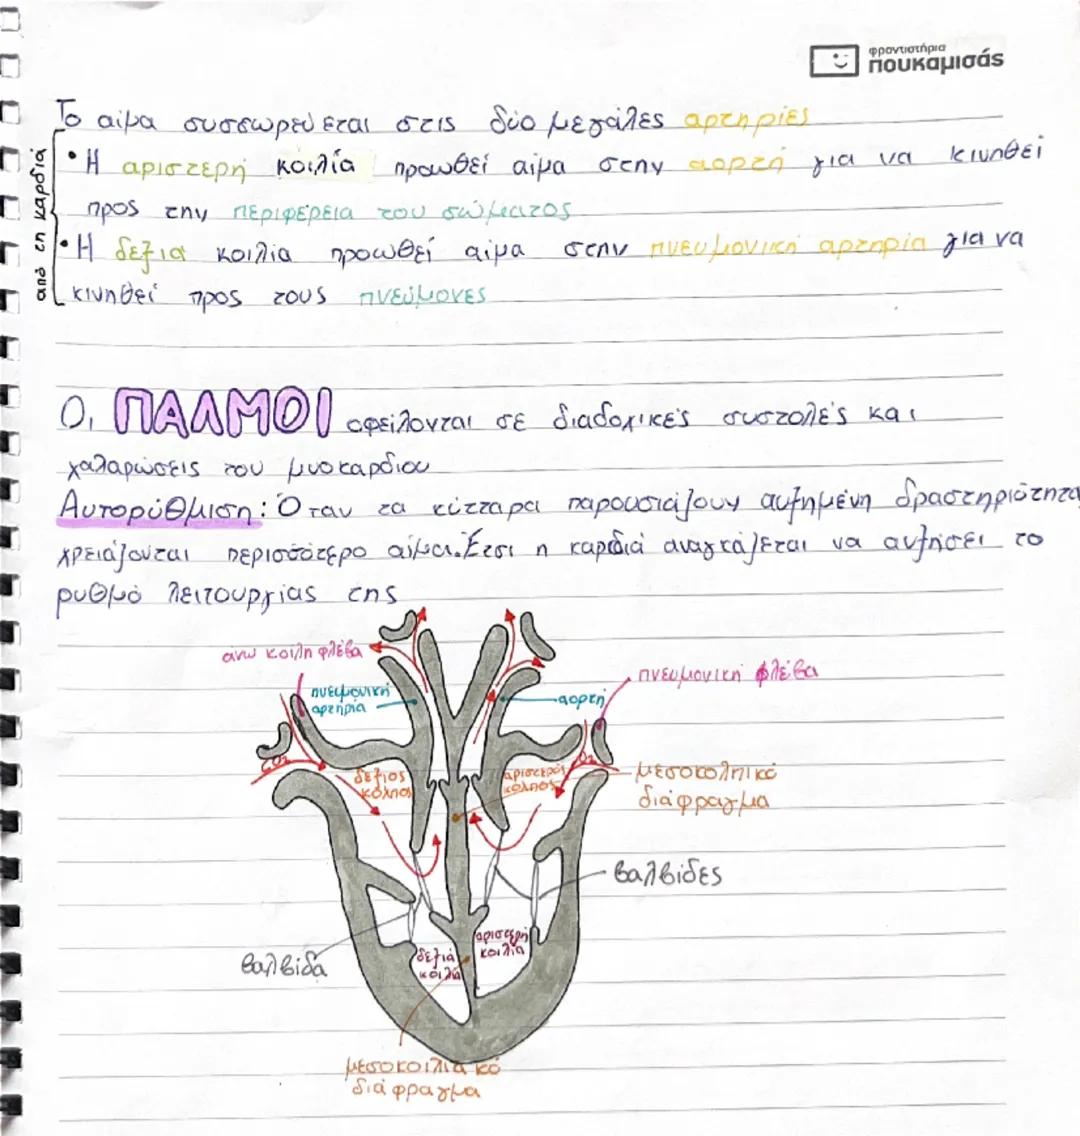 φροντιστήρια
πουκαμισάς
Το αίμα συσσωρεύεται στις δύο μεγάλες αρτηρίες
από τη καρδιά
• Η αριστερή κοιλία προωθεί αίμα στην αορτή για να κινηθεί
προς την περιφέρεια του σώματος
• Η δεξιά κοιλία προωθεί αίμα στην πνευμονική αρτηρία για να
κινηθεί προς τους πνεύμονες
Οι ΠΑΛΜΟΙ οφείλονται σε διαδοχικές συστολές και
χαλαρώσεις του μυοκαρδίου
Αυτορύθμιση: Όταν τα κύτταρα παρουσιάζουν αυξημένη δραστηριότητα
χρειάζονται περισσότερο αίμα. Έτσι η καρδιά αναγκάζεται να αυξήσει το
ρυθμό λειτουργίας της
ανω κοιλη φλέβα
πνευμονική φλέβα
πνευμονική
αρτηρία
αορτή
CO2
δεξιος
κόλπος
αριστερός
κόλπος
O2
μεσοκολπικό
διάφραγμα
βαλβίδες
βαλβίδα
δεξιά
κοιλία
αριστερή
κοιλία
μεσοκοιλιακό
διάφραγμα